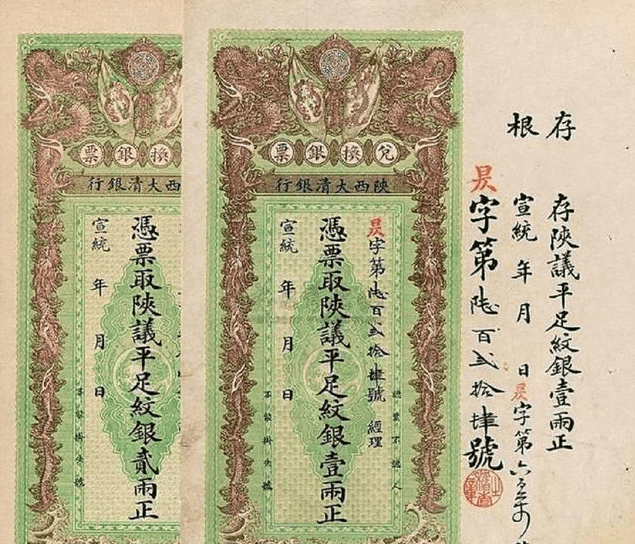 存根
存陝議平足紋銀壹兩正
宣統 年 月 日 昃字第六
昃字第陸百弍拾肆號
兌換銀票
陝西大清銀行
昃字第陸百弍拾肆號 經理
認票不認人
憑票取陝議平足紋銀壹兩正
宣統 年 月 日
掛失號
換銀票
西大清銀行
憑票取陝議平足紋銀貳兩正
宣統 年 月 日
掛失號